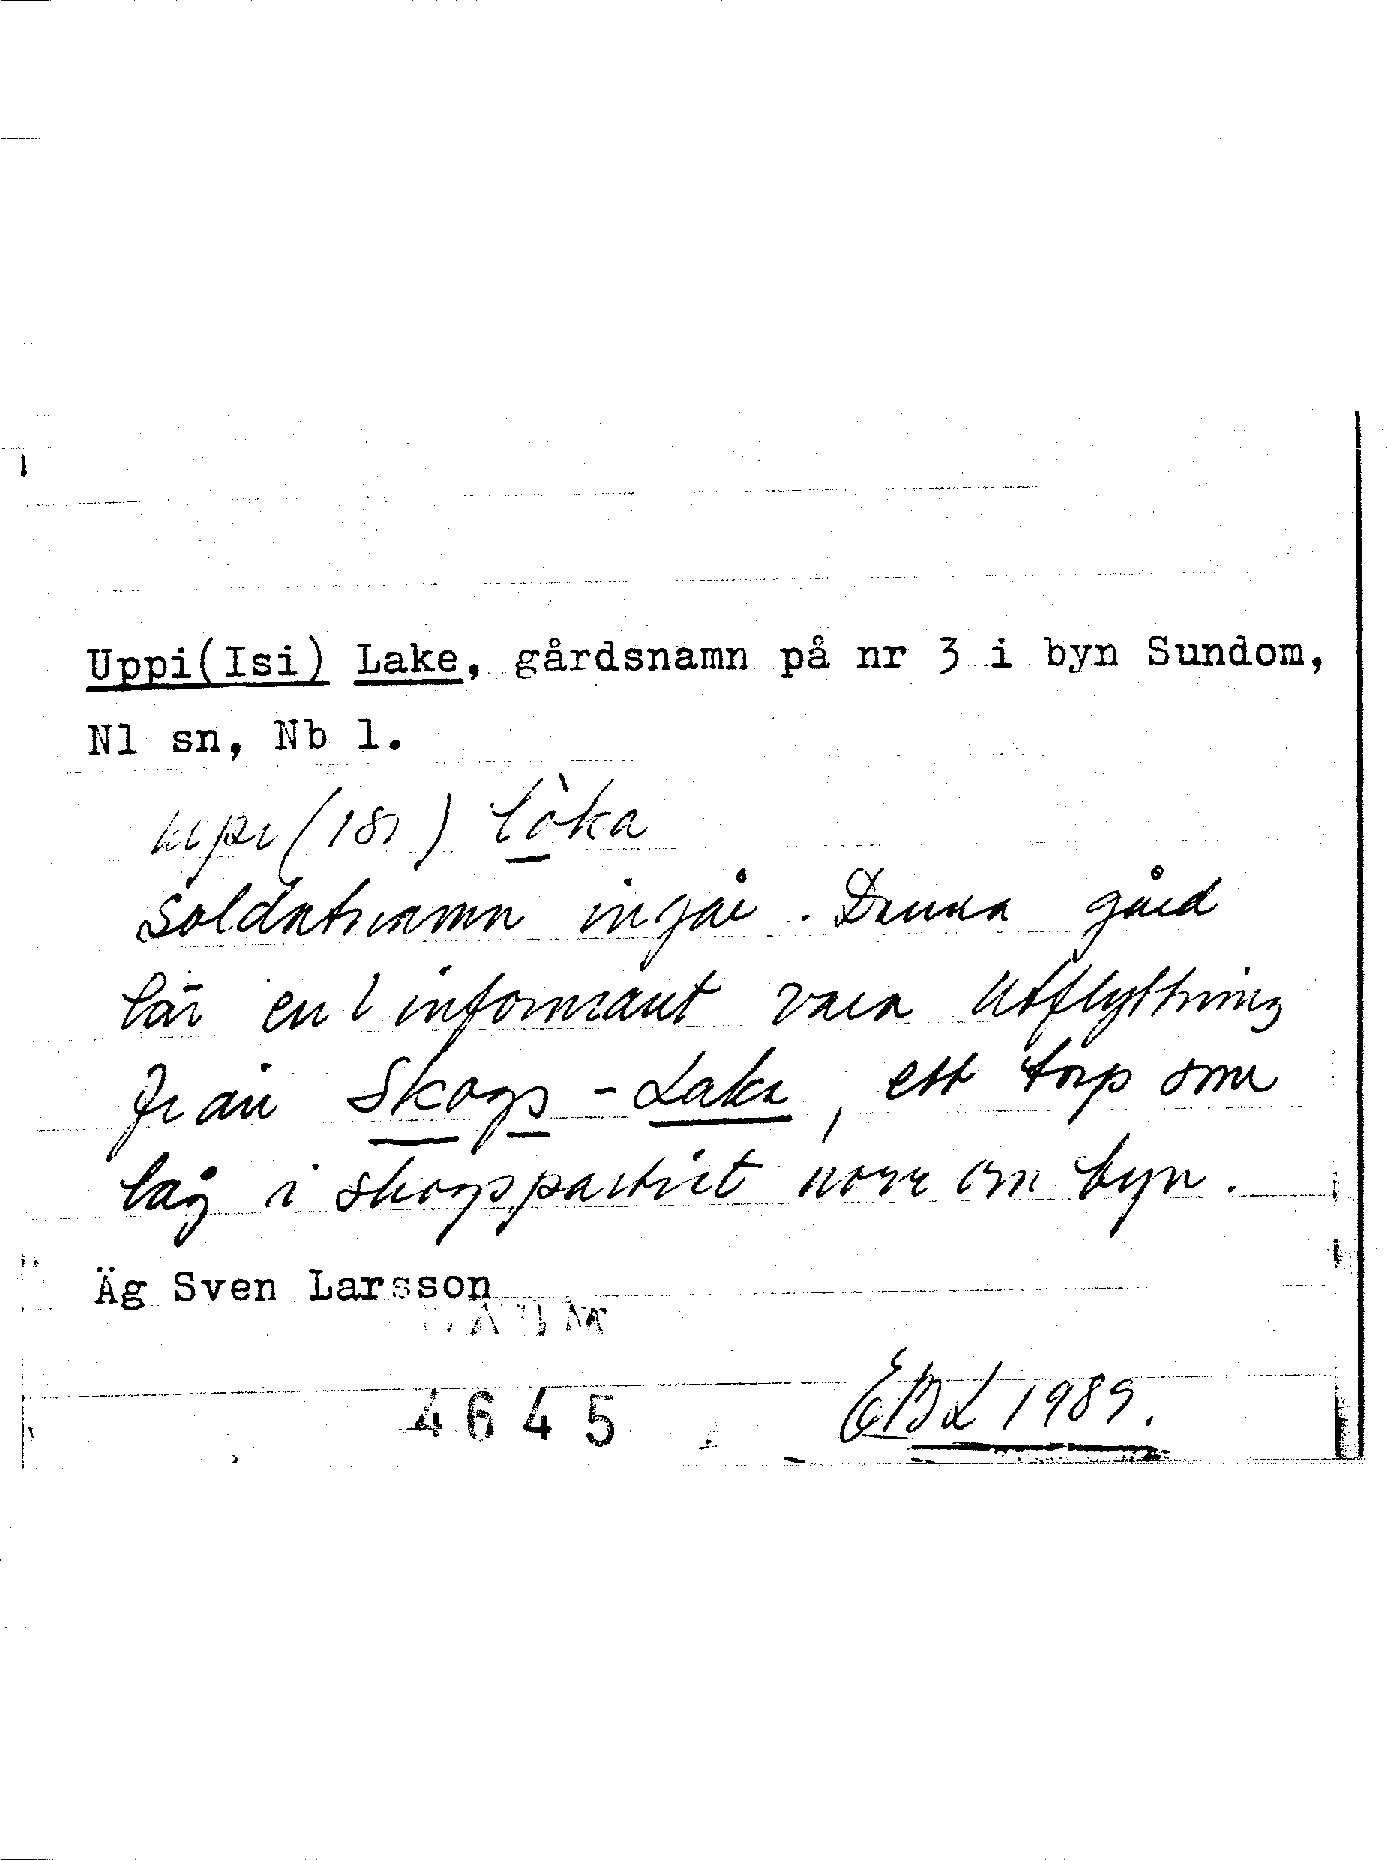 Uppi(Isi) Lake, gårdsnamn på nr 3 i byn Sundom,
Nl sn, Nb l.
uppi (isi) lòka
Soldatnamn ingår. Denna gård
lär enl informant vara utflyttning
från Skogs-Lake, ett torp som
låg i skogspartiet norr om byn.
Äg Sven Larsson
4645
EBL 1989.